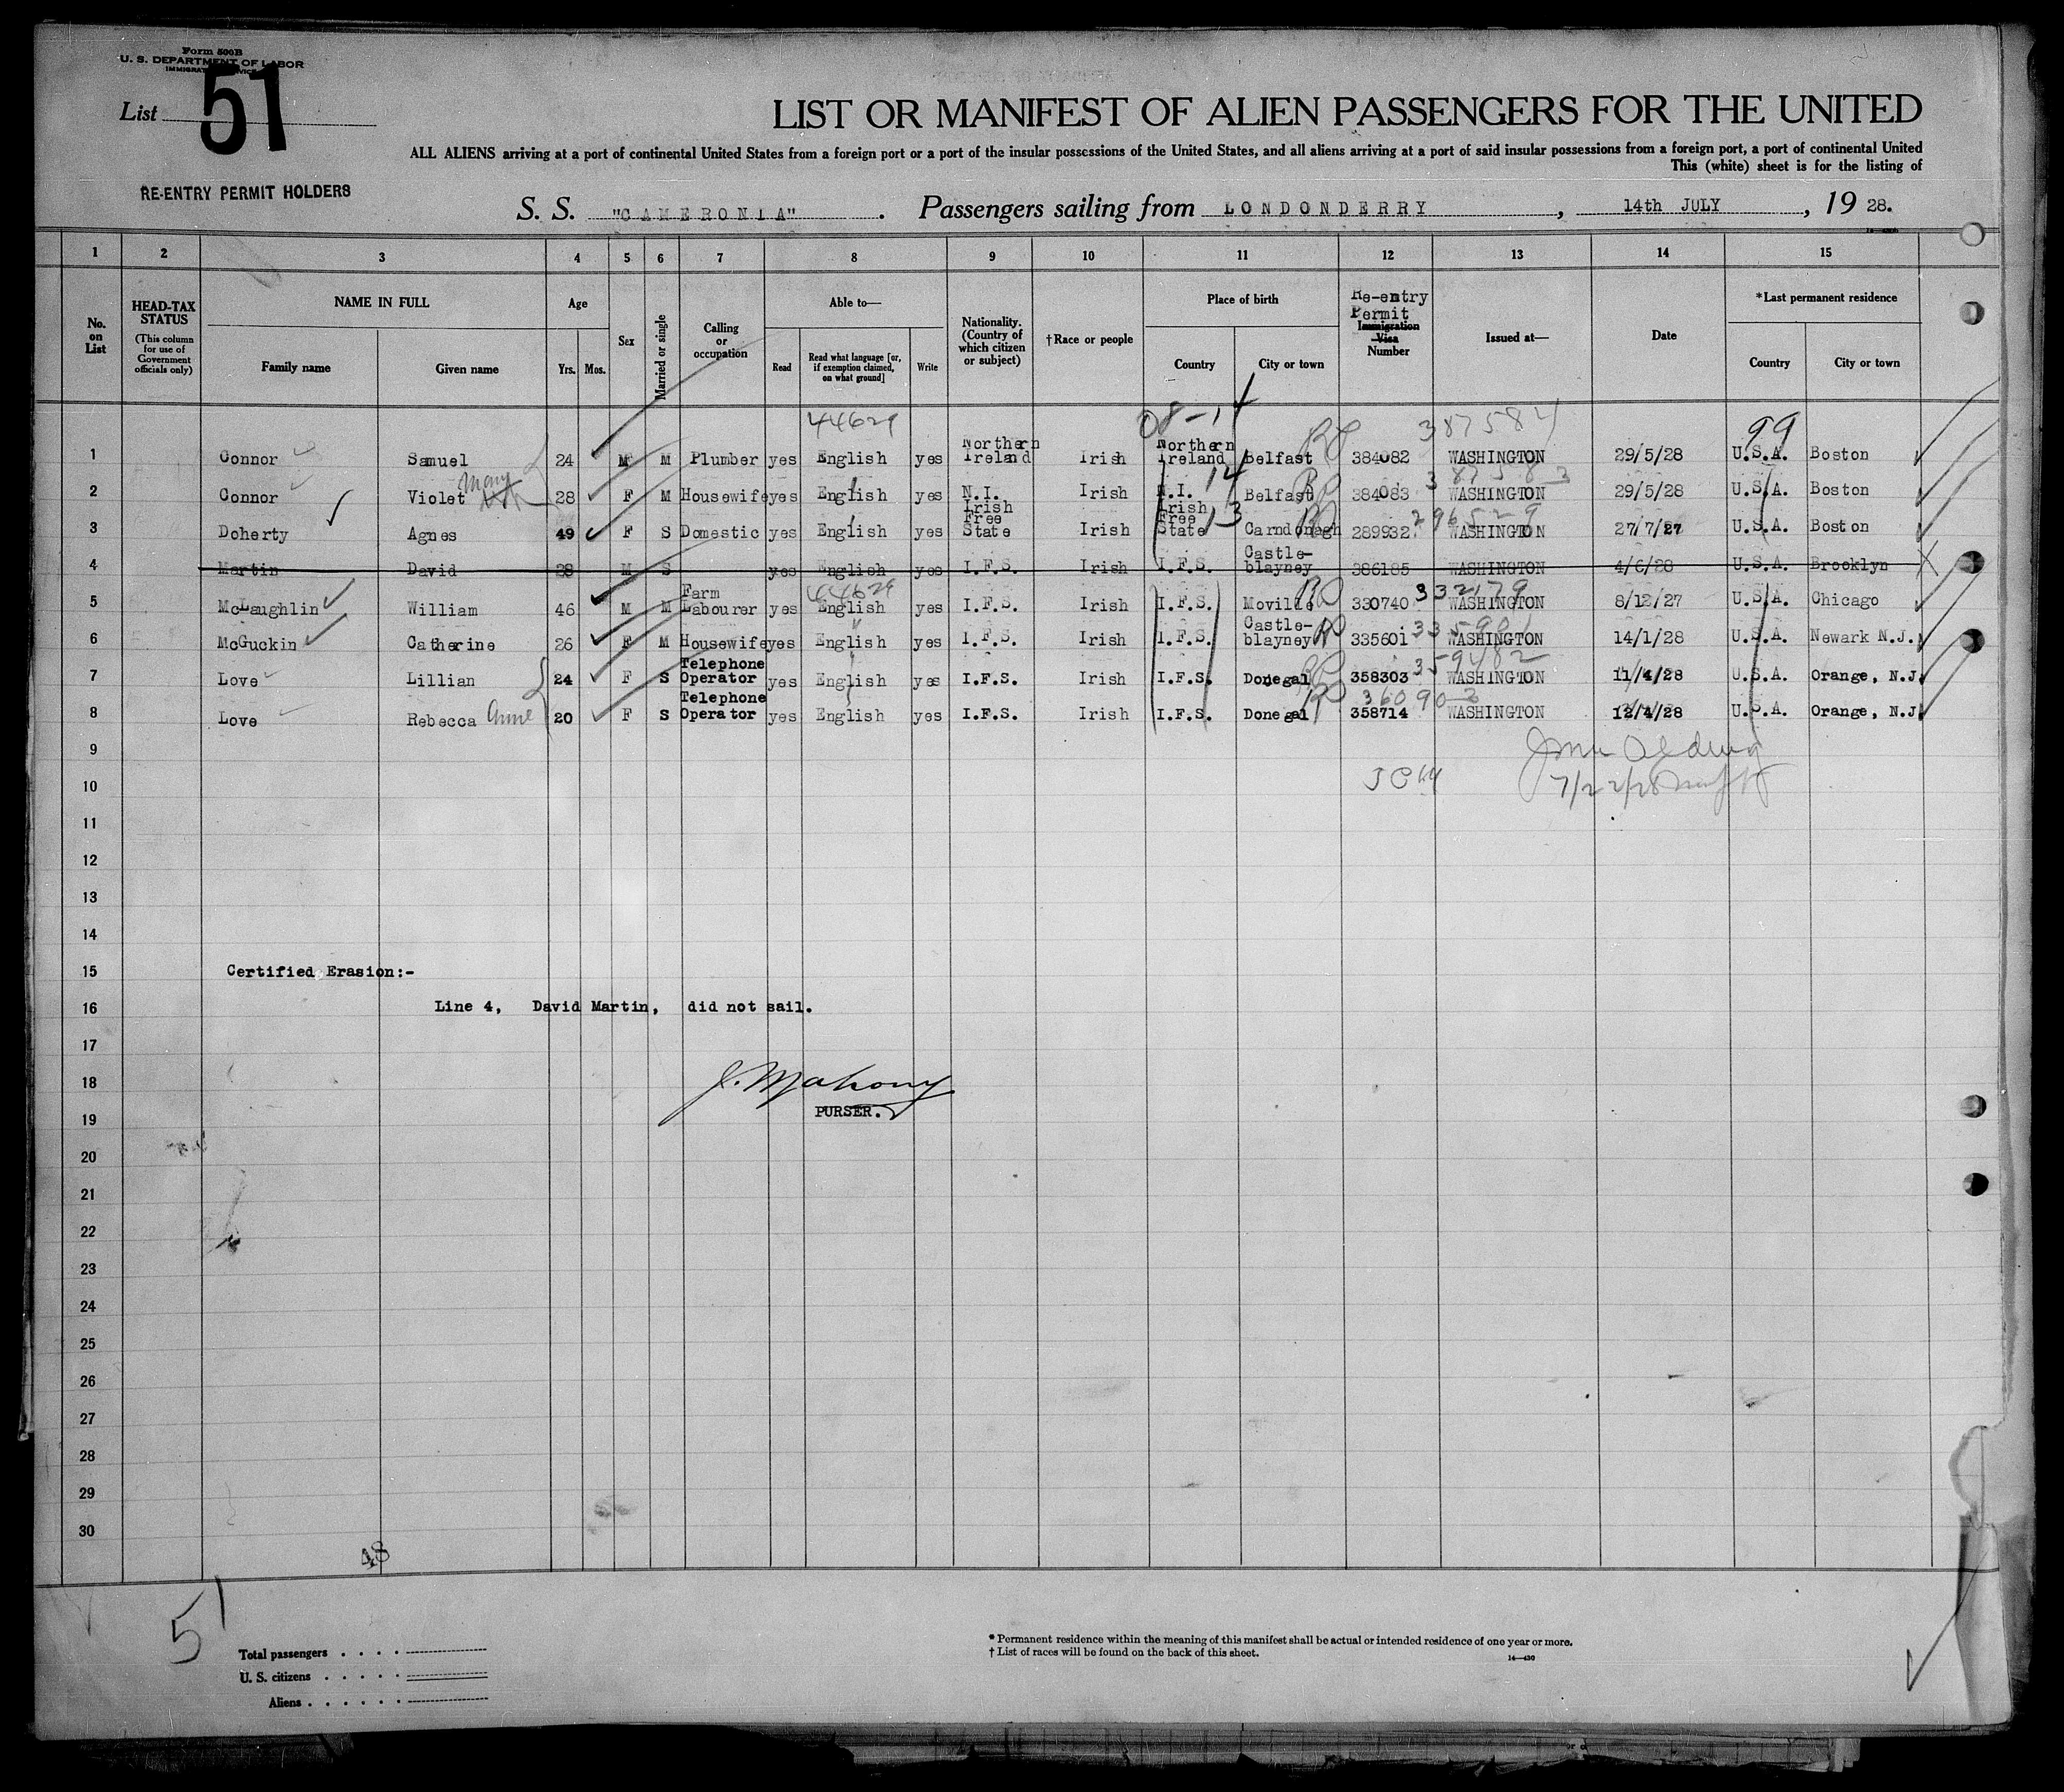 Form 500B
U. S. DEPARTMENT OF LABOR
List 51
LIST OR MANIFEST OF ALIEN PASSENGERS FOR THE UNITED
ALL ALIENS arriving at a port of continental United States from a foreign port or a port of the insular possessions of the United States, and all aliens arriving at a port of said insular possessions from a foreign port, a port of continental United
This (white) sheet is for the listing of
RE-ENTRY PERMIT HOLDERS
S. S. "CAMERONIA". Passengers sailing from LONDONDERRY, 14th JULY, 19 28.
1 2 3 4 5 6 7 8 9 10 11 12 13 14 15
No. on List
HEAD-TAX STATUS (This column for use of Government officials only)
NAME IN FULL
Family name Given name
Age
Yrs. Mos.
Sex
Married or single
Calling or occupation
Able to—
Read Read what language [or, if exemption claimed, on what ground] Write
Nationality. (Country of which citizen or subject)
†Race or people
Place of birth
Country City or town
Re-entry Permit Immigration Visa Number
Issued at—
Date
*Last permanent residence
Country City or town
44629 08-14 387584 99
1 Connor Samuel 24 M M Plumber yes English yes Northern Ireland Irish Northern Ireland Belfast 384082 WASHINGTON 29/5/28 U.S.A. Boston
2 Connor Violet Mary 28 F M Housewife yes English yes N.I. Irish N.I. 14 Belfast 384083 387583 WASHINGTON 29/5/28 U.S.A. Boston
3 Doherty Agnes 49 F S Domestic yes English yes Irish Free State Irish Irish Free State 13 Carndonagh 289932 296529 WASHINGTON 27/7/27 U.S.A. Boston
4 Martin David 28 M S yes English yes I.F.S. Irish I.F.S. Castle-blayney 386185 WASHINGTON 4/6/28 U.S.A. Brooklyn
44629
5 McLaughlin William 46 M M Farm Labourer yes English yes I.F.S. Irish I.F.S. Moville 330740 332179 WASHINGTON 8/12/27 U.S.A. Chicago
6 McGuckin Catherine 26 F M Housewife yes English yes I.F.S. Irish I.F.S. Castle-blayney 335601 WASHINGTON 14/1/28 U.S.A. Newark N.J.
7 Love Lillian 24 F S Telephone Operator yes English yes I.F.S. Irish I.F.S. Donegal 358303 359482 WASHINGTON 11/4/28 U.S.A. Orange, N.J.
8 Love Rebecca Anne 20 F S Telephone Operator yes English yes I.F.S. Irish I.F.S. Donegal 358714 360902 WASHINGTON 12/4/28 U.S.A. Orange, N.J.
9
10 7/22/28
11
12
13
14
15 Certified Erasion:-
16 Line 4, David Martin, did not sail.
17
18 J. Mahony
19 PURSER.
20
21
22
23
24
25
26
27
28
29
30
48
51
Total passengers
U. S. citizens
Aliens
* Permanent residence within the meaning of this manifest shall be actual or intended residence of one year or more.
† List of races will be found on the back of this sheet.
14—430